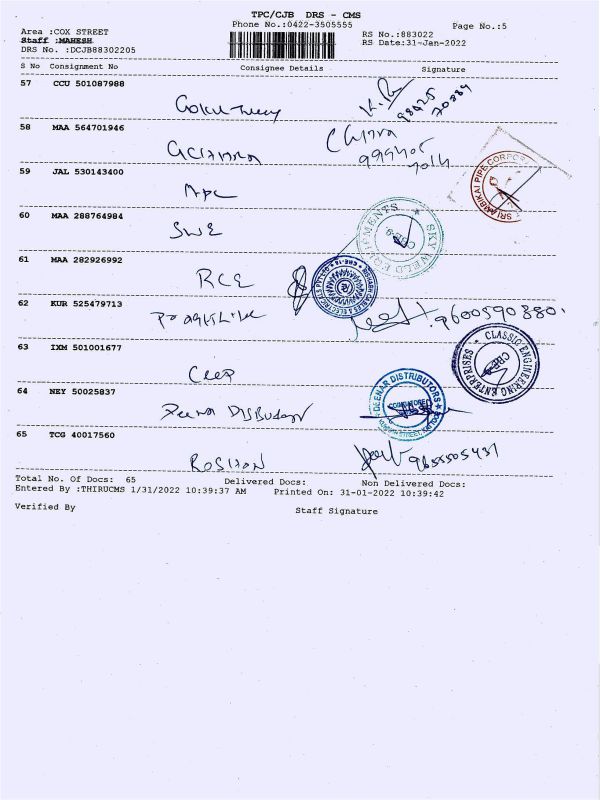 TPC/CJB DRS - CMS
Phone No.:0422-3505555
Page No.:5
Area :COX STREET
RS No.:883022
Staff :MAHESH
RS Date:31-Jan-2022
DRS No. :DCJB88302205
S No Consignment No Consignee Details Signature
57 CCU 501087988
98425
58 MAA 564701946
Chitra
59 JAL 530143400
SRI AMBIKAI PIPE CORPO
60 MAA 288764984
SWE
SKY WELD EQUIPMENTS
61 MAA 282926992
RCE
62 KUR 525479713
9600590880.
63 IXM 501001677
CEEP
CLASSIC ENGINEERING ENTERPRISES
64 NEY 50025837
Deena Distributor
DEENAR DISTRIBUTORS
COIMBATORE
65 TCG 40017560
ROSHAN
9655505431
Total No. Of Docs: 65 Delivered Docs: Non Delivered Docs:
Entered By :THIRUCMS 1/31/2022 10:39:37 AM Printed On: 31-01-2022 10:39:42
Verified By Staff Signature